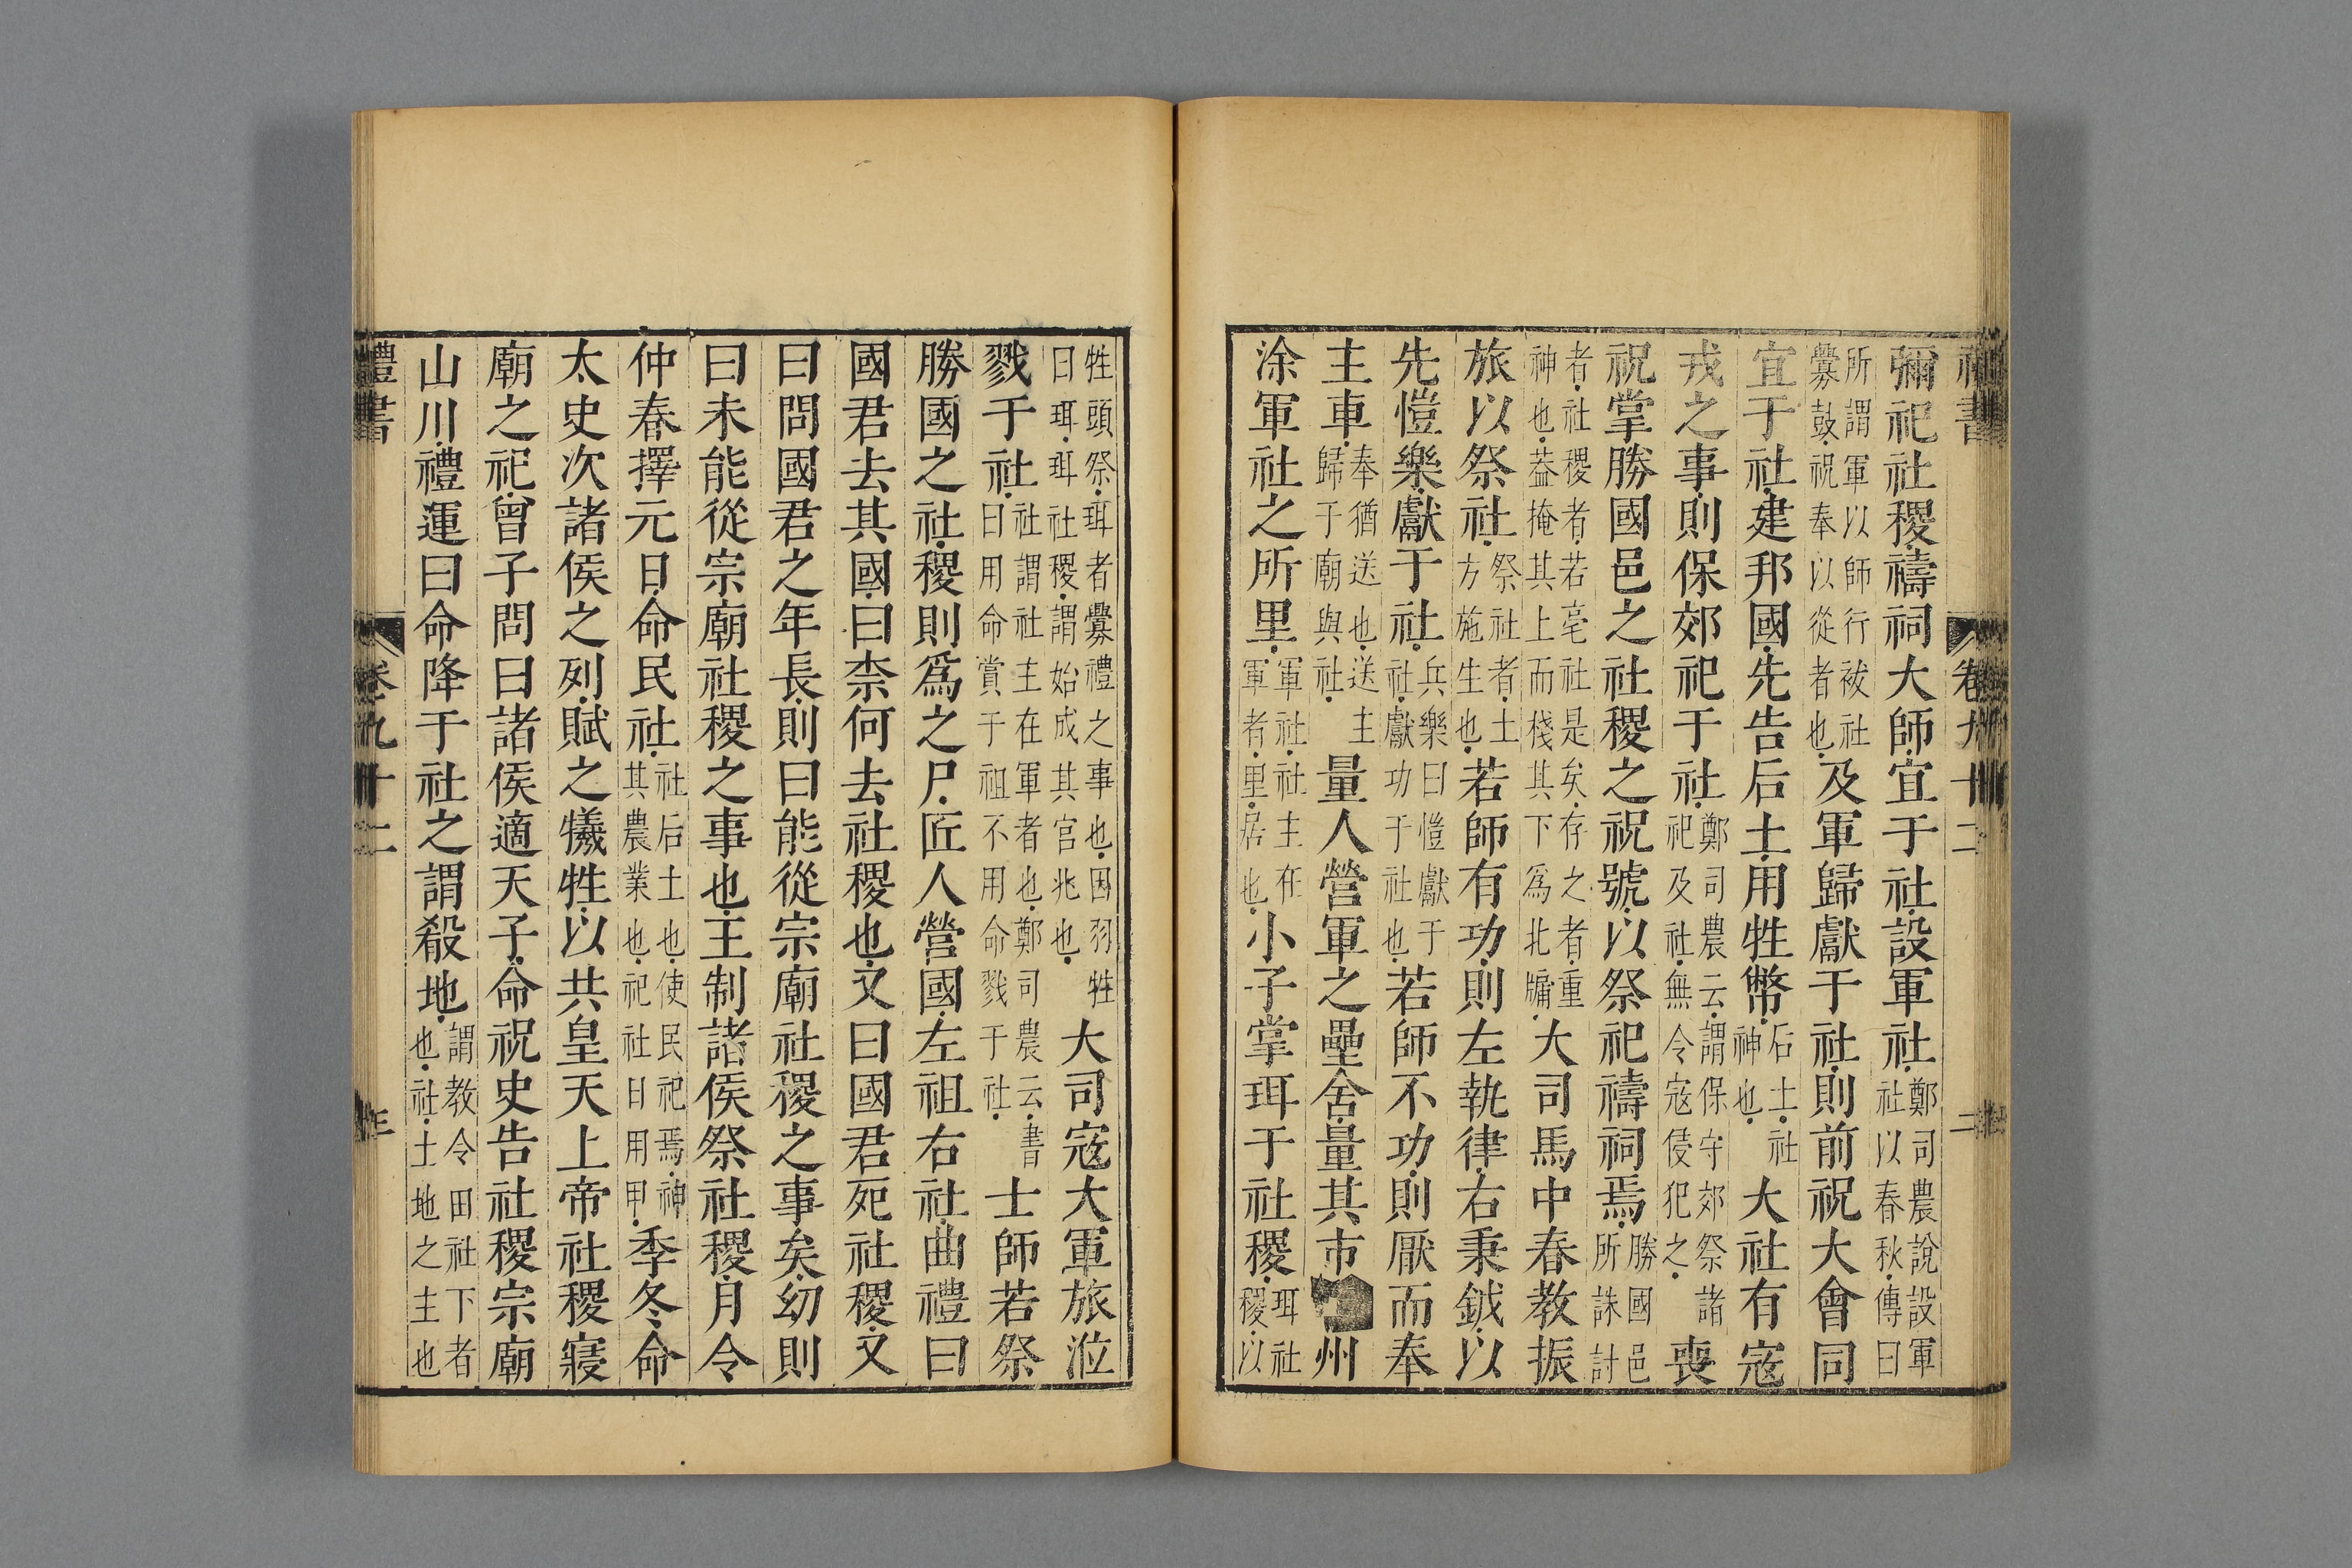 禮書 卷九十二 二
彌祀社稷禱祠大師宜于社設軍社鄭司農說設軍社以春秋傳曰
所謂軍以師行祓社釁鼓祝奉以從者也及軍歸獻于社則前祝大會同
宜于社建邦國先告后土用牲幣后土社神也大社有寇
戎之事則保郊祀于社鄭司農云謂保守郊祭諸祀及社無令寇侵犯之喪
祝掌勝國邑之社稷之祝號以祭祀禱祠焉勝國邑所誅討
者社稷者若亳社是矣存之者重神也葢掩其上而棧其下爲北牖大司馬中春教振
旅以祭社祭社者土方施生也若師有功則左執律右秉鉞以
先愷樂獻于社兵樂曰愷獻于社獻功于社也若師不功則厭而奉
主車奉猶送也送主歸于廟與社量人營軍之壘舍量其市州
涂軍社之所里軍社社主在軍者里居也小子掌珥于社稷珥社稷以
牲頭祭珥者釁禮之事也因羽牲曰珥珥社稷謂始成其官兆也大司寇大軍旅涖
戮于社社謂社主在軍者也鄭司農云書曰用命賞于祖不用命戮于社士師若祭
勝國之社稷則爲之尸匠人營國左祖右社曲禮曰
國君去其國曰柰何去社稷也文曰國君死社稷文
曰問國君之年長則曰能從宗廟社稷之事矣幼則
曰未能從宗廟社稷之事也王制諸侯祭社稷月令
仲春擇元日命民社社后土也使民祀焉神其農業也祀社日用甲季冬命
太史次諸侯之列賦之犧牲以共皇天上帝社稷寢
廟之祀曾子問曰諸侯適天子命祝史告社稷宗廟
山川禮運曰命降于社之謂殽地謂教令田社下者也社土地之主也
禮書 卷九十二